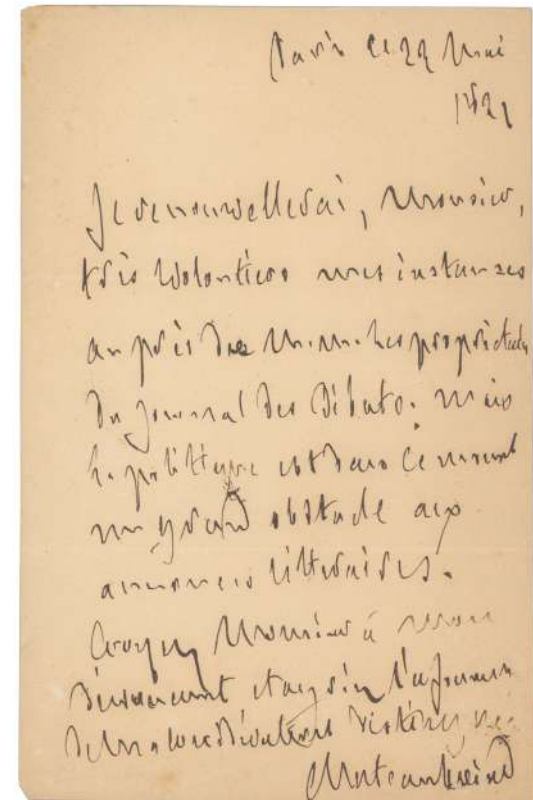 Paris ce 22 Mai
1821
Je renouvellerai, Monsieur,
très volontiers mes instances
auprès de M.M. les propriétaires
du Journal des Débats. mais
la politique est dans ce moment
un grand obstacle aux
annonces littéraires.
Croyez Monsieur à mon
dévouement et agréez l'assurance
de ma considération distinguée
Chateaubriand